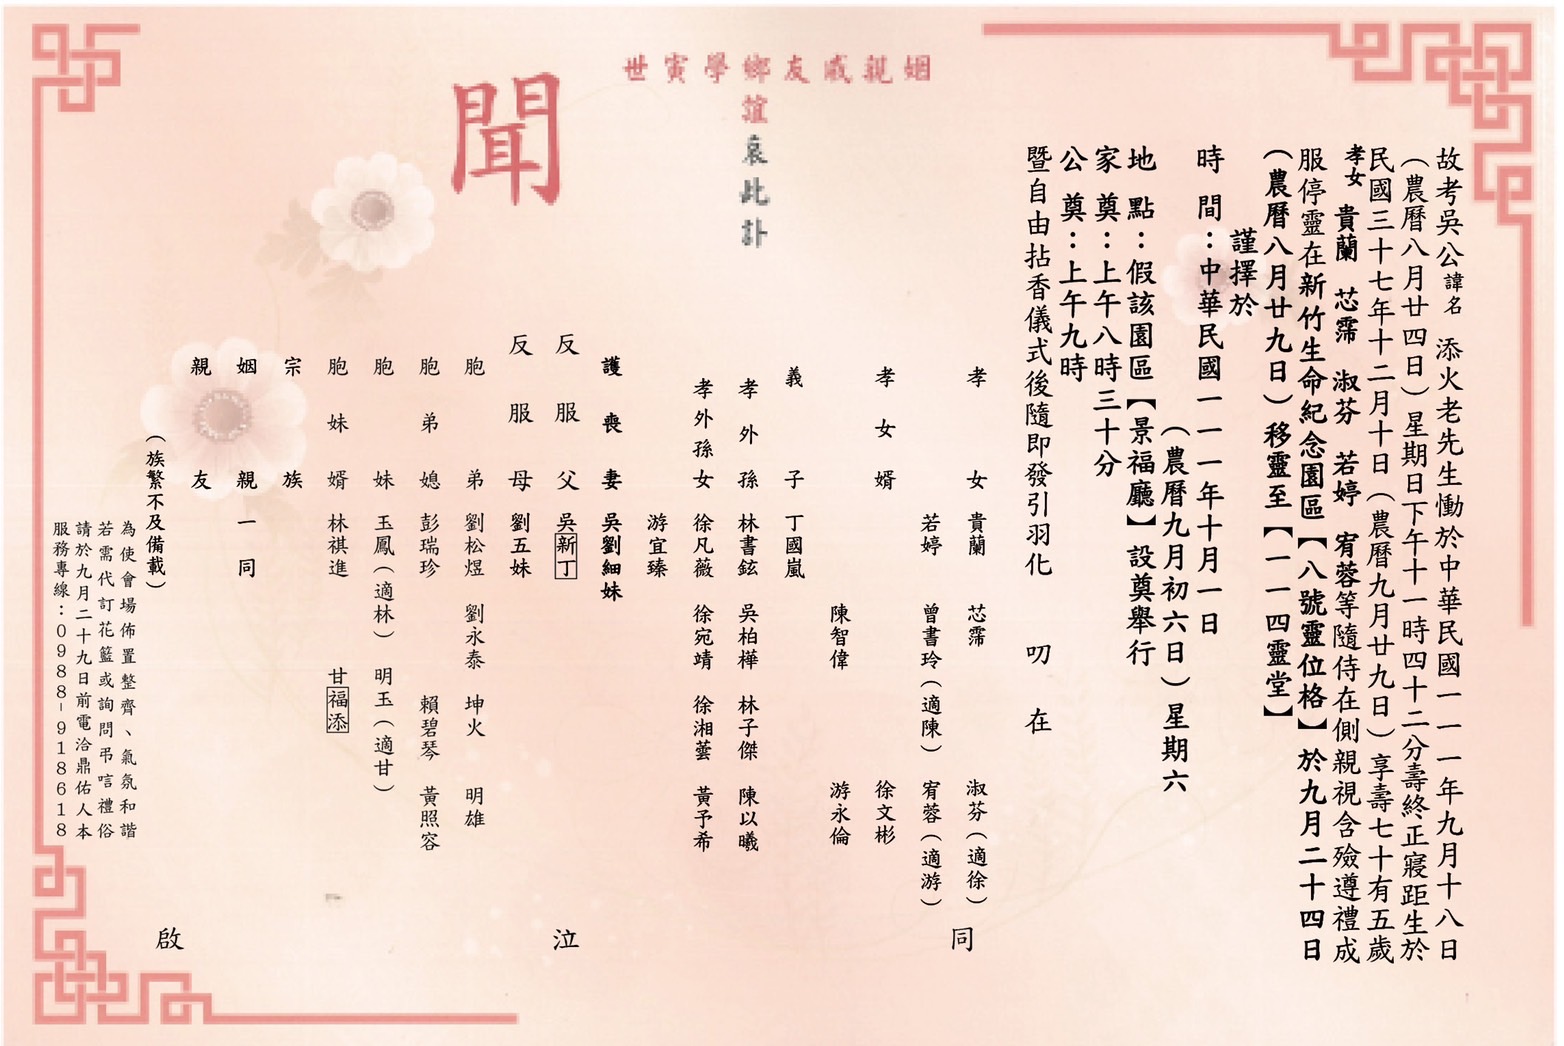 故考吳公諱名 添火老先生慟於中華民國一一一年九月十八日
（農曆八月廿四日）星期日下午十一時四十二分壽終正寢距生於
民國三十七年十二月十日（農曆九月廿九日）享壽七十有五歲
孝女 貴蘭 芯霈 淑芬 若婷 宥蓉等隨侍在側親視含殮遵禮成
服停靈在新竹生命紀念園區【八號靈位格】於九月二十四日
（農曆八月廿九日）移靈至【一一四靈堂】
謹擇於
時間：中華民國一一一年十月一日
（農曆九月初六日）星期六
地點：假該園區【景福廳】設奠舉行
家奠：上午八時三十分
公奠：上午九時
暨自由拈香儀式後隨即發引羽化 叨在
姻親戚友鄉學寅世
誼哀此訃
聞
孝女 貴蘭 芯霈 淑芬（適徐）
若婷 曾書玲（適陳） 宥蓉（適游）
孝女婿 徐文彬
陳智偉 游永倫
義子 丁國嵐
孝外孫 林書鉉 吳柏樺 林子傑 陳以曦
孝外孫女 徐凡薇 徐宛靖 徐湘蕓 黃予希
游宜臻
護喪妻 吳劉細妹
反服父 吳新丁
反服母 劉五妹
胞弟 劉松煜 劉永泰 坤火 明雄
胞弟媳 彭瑞珍 賴碧琴 黃照容
胞妹 玉鳳（適林） 明玉（適甘）
胞妹婿 林祺進 甘福添
宗族
姻親一同
親友
（族繁不及備載）
同泣啟
為使會場佈置整齊、氣氛和諧
若需代訂花籃或詢問弔唁禮俗
請於九月二十九日前電洽鼎佑人本
服務專線：0988-918618